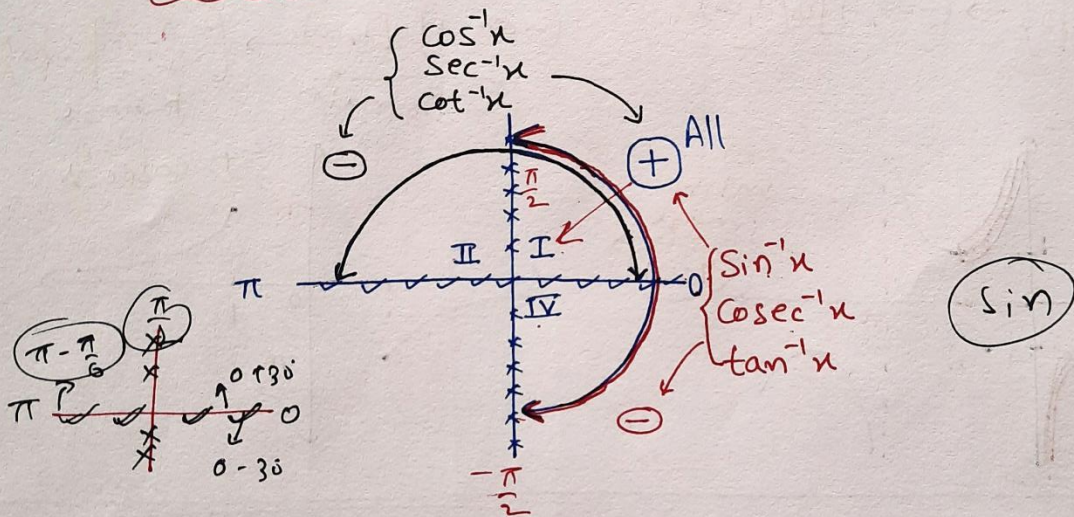 cos⁻¹x
sec⁻¹x
cot⁻¹x
⊖
⊕ All
π/2
II I
π 0
IV
Sin⁻¹x
Cosec⁻¹x
tan⁻¹x
⊖
-π/2
Sin
π - π/6
π 0
0+30
0-30